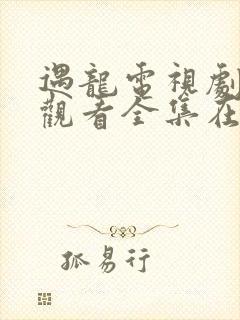 遇龍電視劇
觀看全集在
孤易行